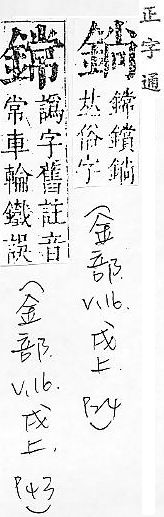 正字通
鋿
鏛鋿
並俗字
(金部. V.16. 戌上. P24)
鏛
譌字舊註音
常車輪鐵誤
(金部. V.16. 戌上. P43)